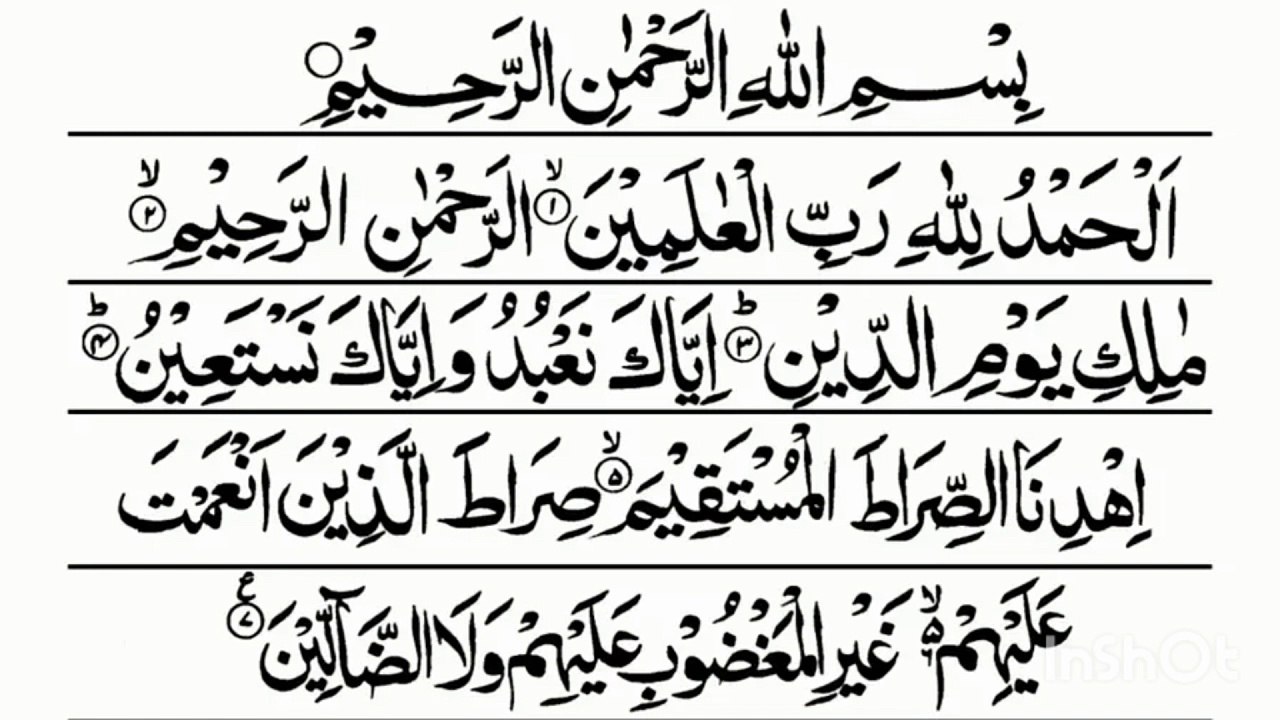 بِسْمِ اللّٰهِ الرَّحْمٰنِ الرَّحِيْمِ۝
اَلْحَمْدُ لِلّٰهِ رَبِّ الْعٰلَمِيْنَۙ۝۱ الرَّحْمٰنِ الرَّحِيْمِۙ۝۲
مٰلِكِ يَوْمِ الدِّيْنِؕ۝۳ اِيَّاكَ نَعْبُدُ وَاِيَّاكَ نَسْتَعِيْنُؕ۝۴
اِهْدِنَا الصِّرَاطَ الْمُسْتَقِيْمَۙ۝۵ صِرَاطَ الَّذِيْنَ اَنْعَمْتَ
عَلَيْهِمْ ۙ۵ غَيْرِ الْمَغْضُوْبِ عَلَيْهِمْ وَلَا الضَّآلِّيْنَ۝۷ ع
InShOt